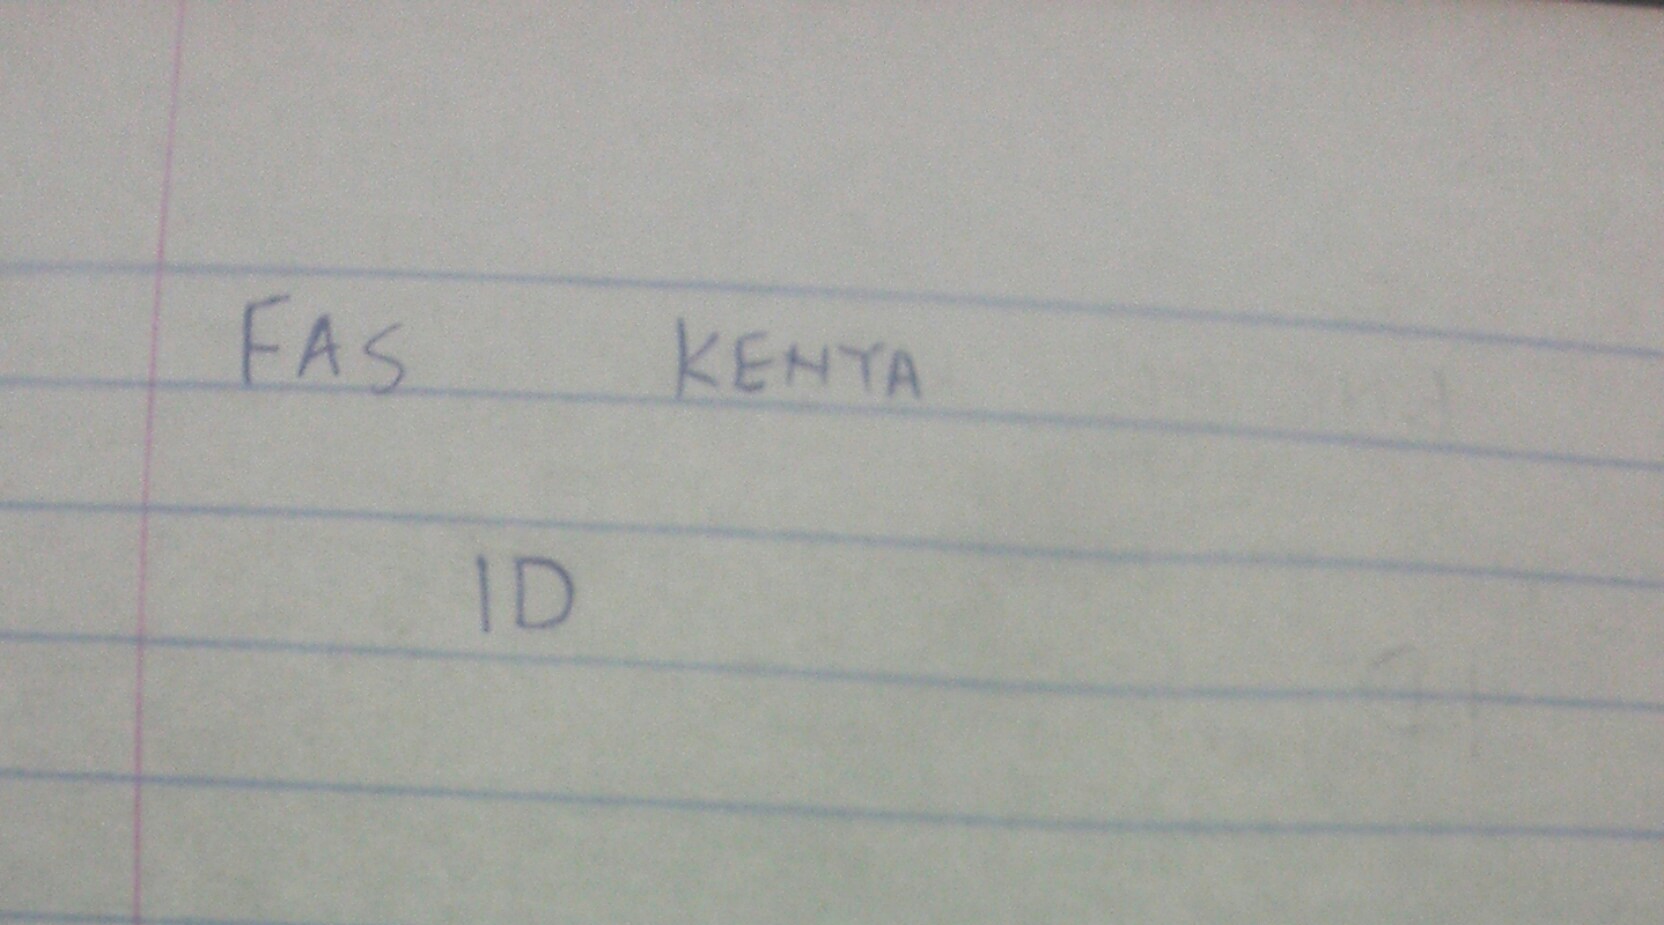 FAS KENYA
ID